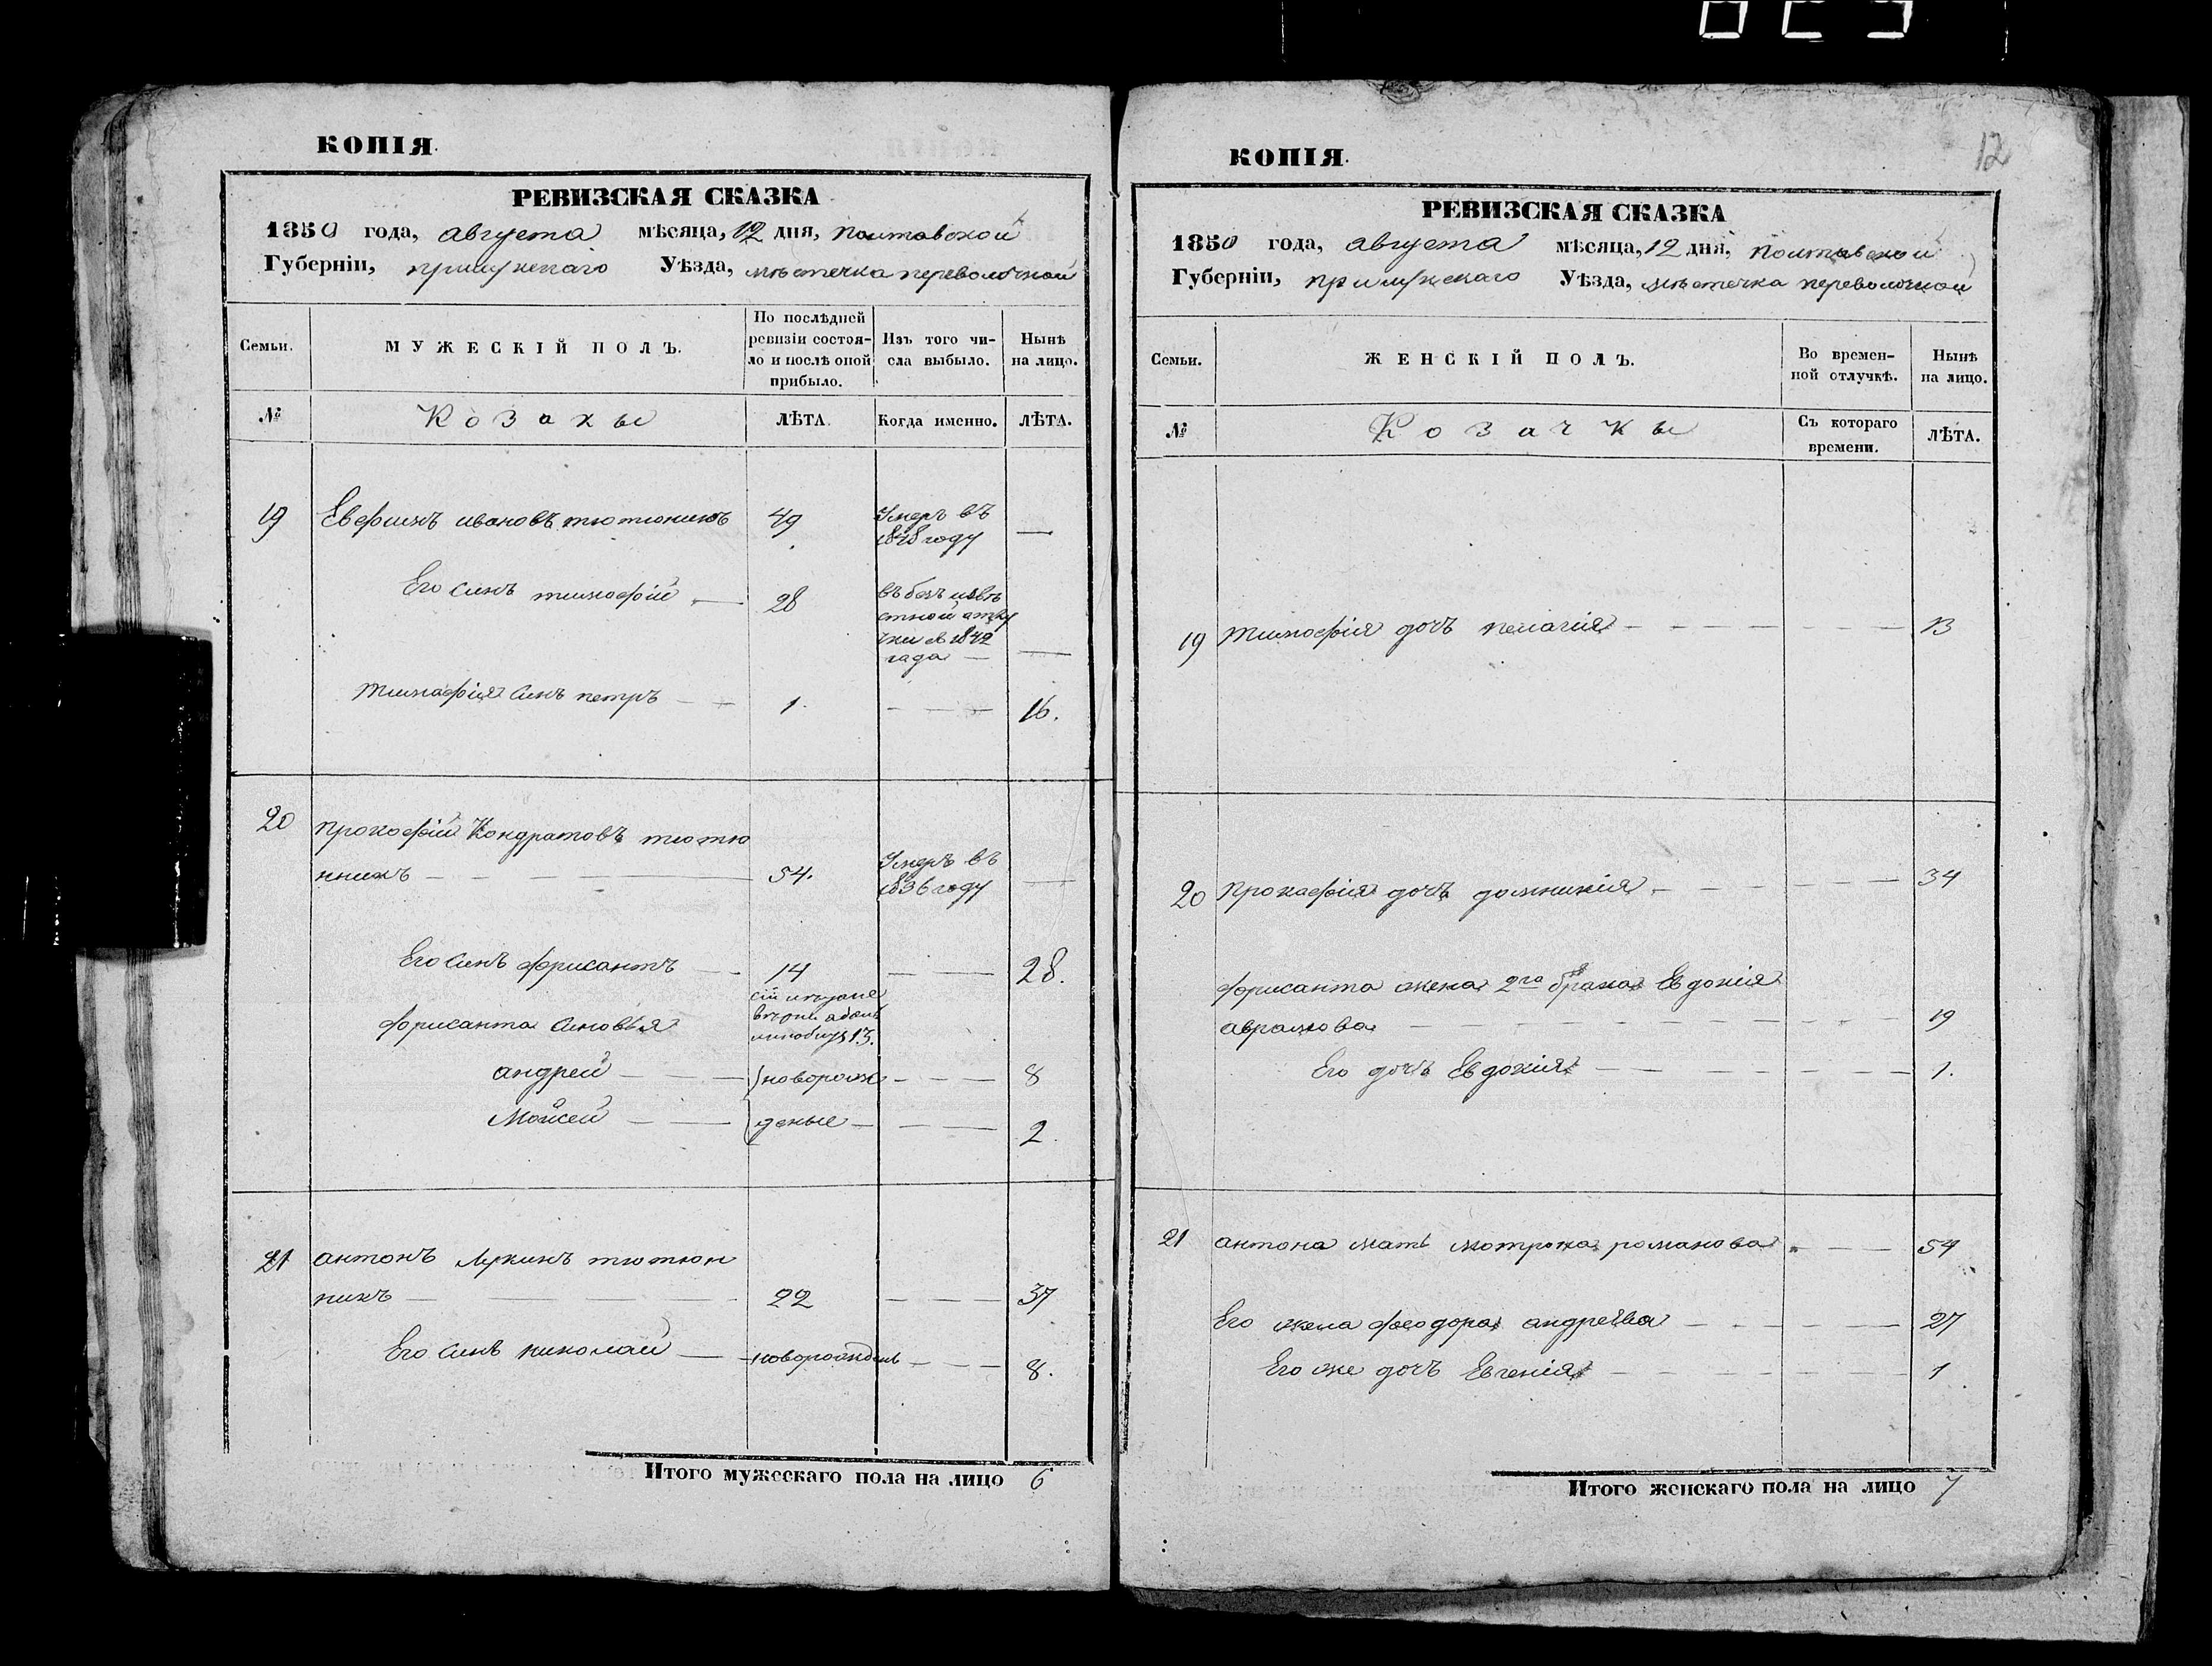 КОПІЯ.
РЕВИЗСКАЯ СКАЗКА
1850 года, августа мѣсяца, 12 дня, полтавской
Губерніи, прилукскаго Уѣзда, мѣстечка переволочной
Семьи.
МУЖЕСКІЙ ПОЛЪ.
По послѣдней
ревизіи состоя-
ло и послѣ оной
прибыло.
Изъ того чи-
сла выбыло.
Нынѣ
на лицо.
№
Козаки
ЛѢТА.
Когда именно.
ЛѢТА.
19 Евфимъ ивановъ тютюникъ 49 Умеръ въ
1848 году —
Его синъ тимофій — 28 въ безъ извѣ
стной отлу
чки съ 1842
года —
тимофія синъ петръ — — 1. — — — 16.
20 прокофій Кондратовъ тютю
нникъ — — — 54. Умеръ въ
1836 году —
Его синъ фрисантъ — — 14 — — 28.
фрисанта синовья
андрей — — новорож — — — 8
Мойсей — — деные — — — 2.
21 антонъ Лукинъ тютюн
никъ — — — 22 — — — 37
Его синъ николай — новорожден — — — 8.
Итого мужескаго пола на лицо 6
12
КОПІЯ.
РЕВИЗСКАЯ СКАЗКА
1850 года, августа мѣсяца, 12 дня, полтавской
Губерніи, прилукскаго Уѣзда, мѣстечка переволочной
Семьи.
ЖЕНСКІЙ ПОЛЪ.
Во времен-
ной отлучкѣ.
Нынѣ
на лицо.
№
Козачкы
Съ котораго
времени.
ЛѢТА.
19 тимофія дочъ пелагія — — — 13
20 прокофія дочъ домникія — — — 34
фрисанта жена 2го брака Евдокія
аврамова — — — 19
Его дочъ Евдокія — — — 1.
21 антона мать мотрона романова — — 54
Его жена феодора андреева — — — 27
Его же дочъ Евгенія — — — 1
Итого женскаго пола на лицо 7